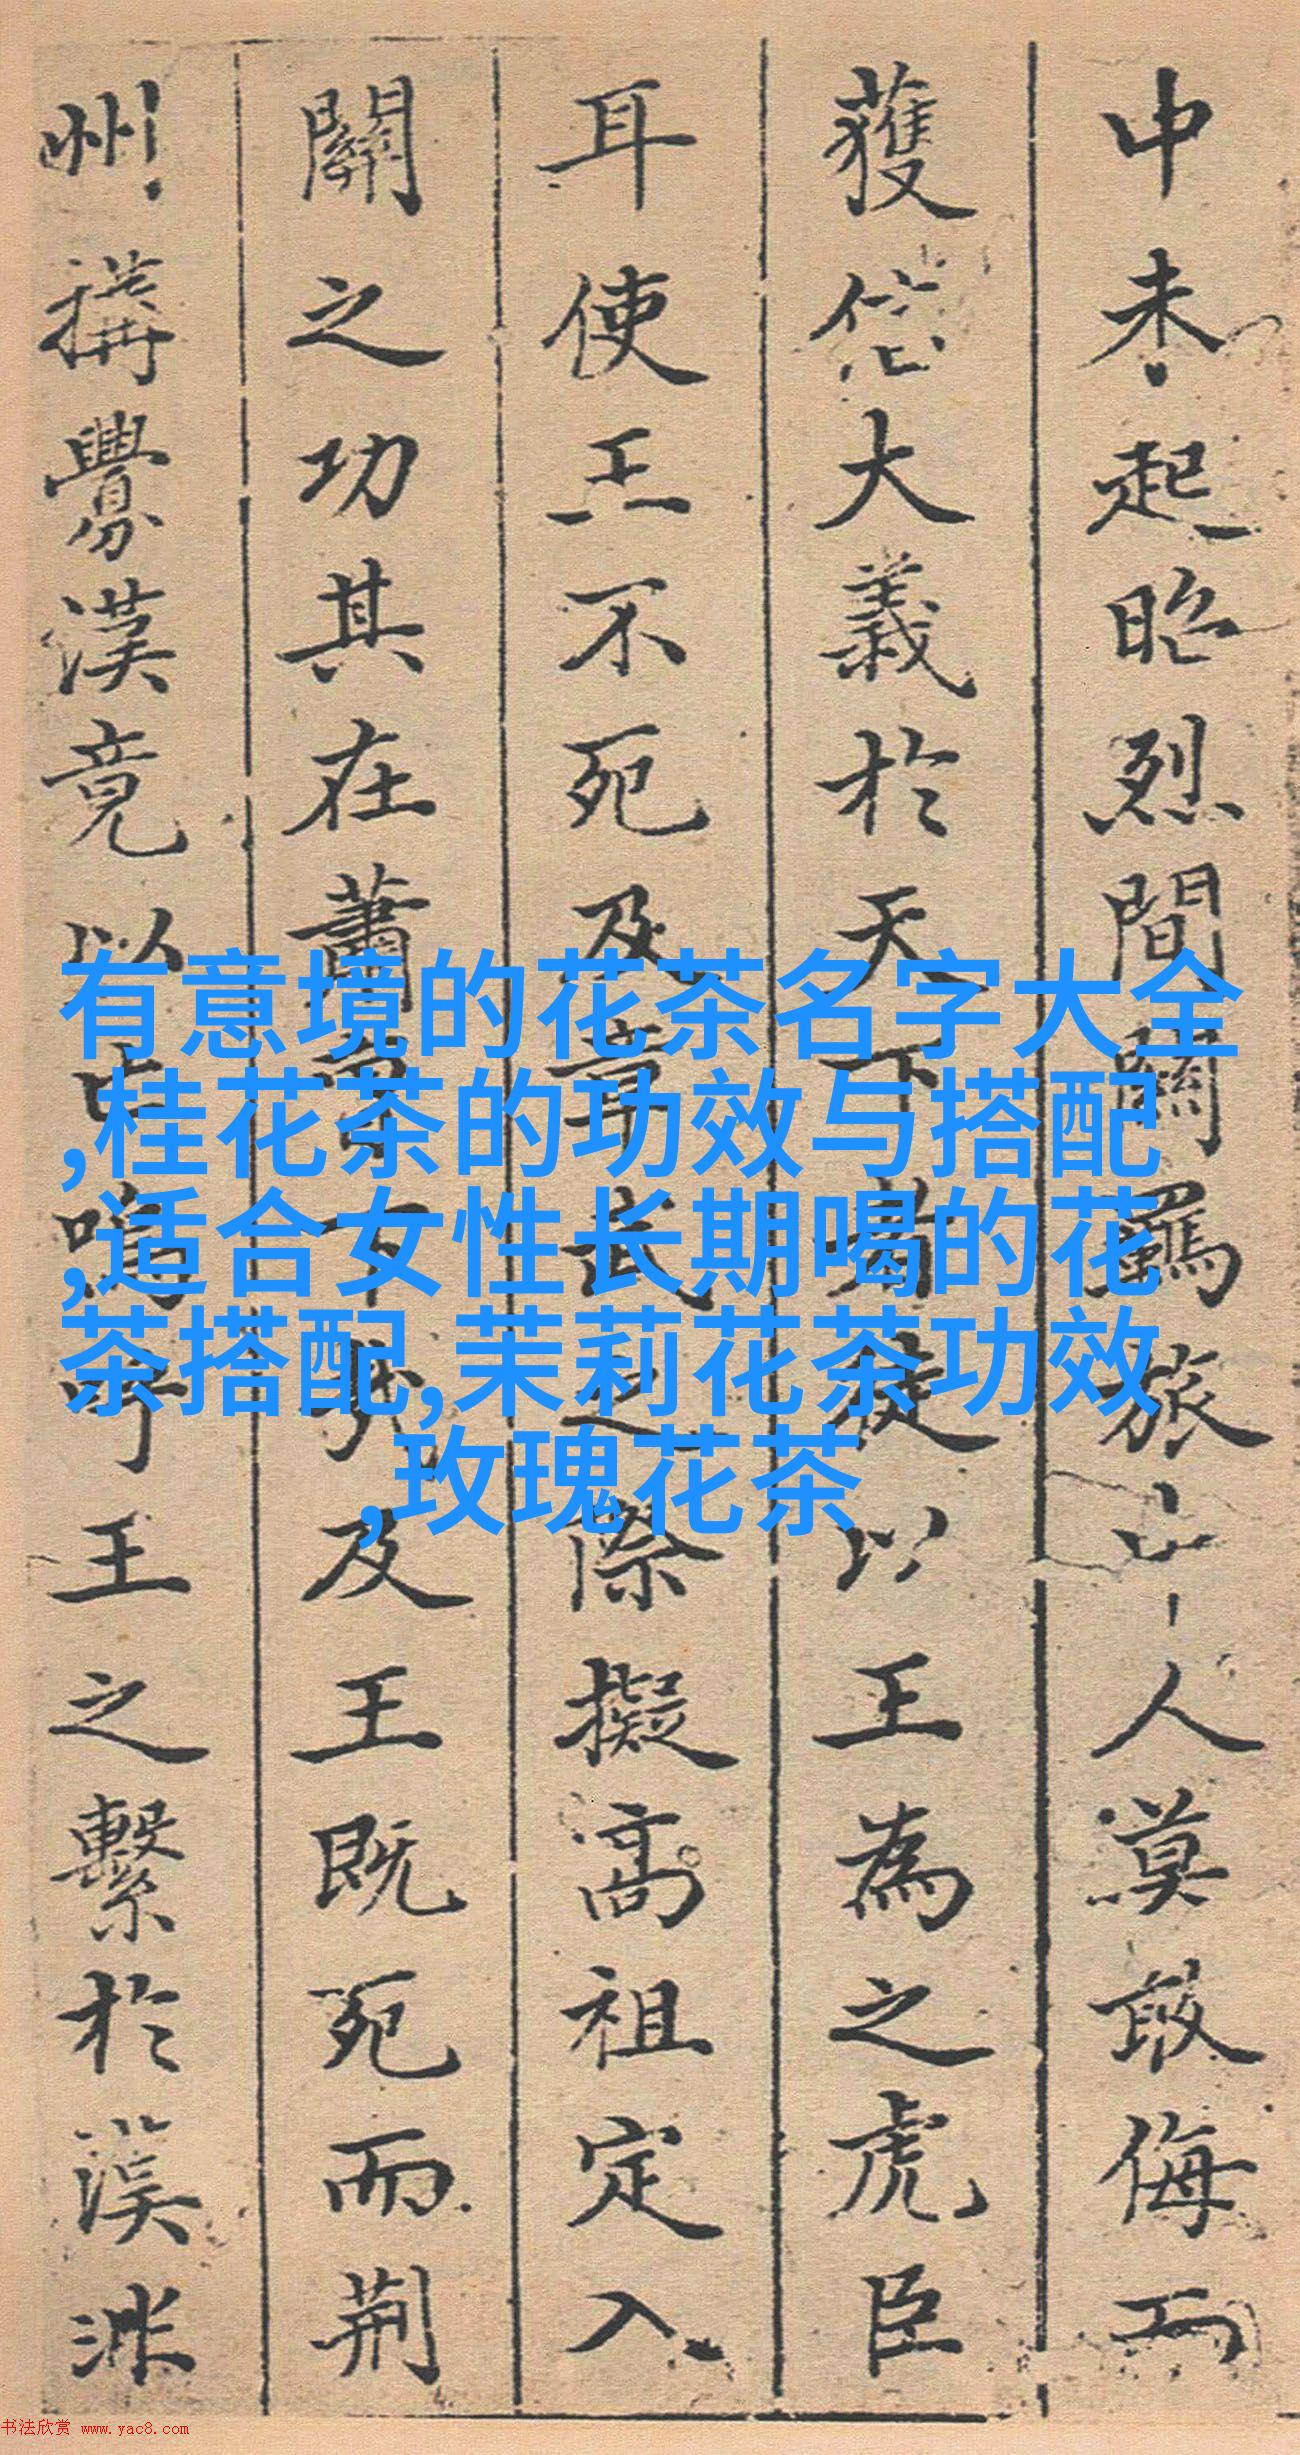 中未起昭烈間關羈旅人漠敢侮而
獲信大義於天下者徒以王為之虎臣
耳使王不死及章武之際擬高祖定入
關之功其在蕭曹下哉及王既死而荊
州搆釁漢竟以亡嗚呼王之繫於漢
有意境的花茶名字大全
,桂花茶的功效与搭配
,适合女性长期喝的花
茶搭配,茉莉花茶功效
,玫瑰花茶
书法欣赏 www.yac8.com